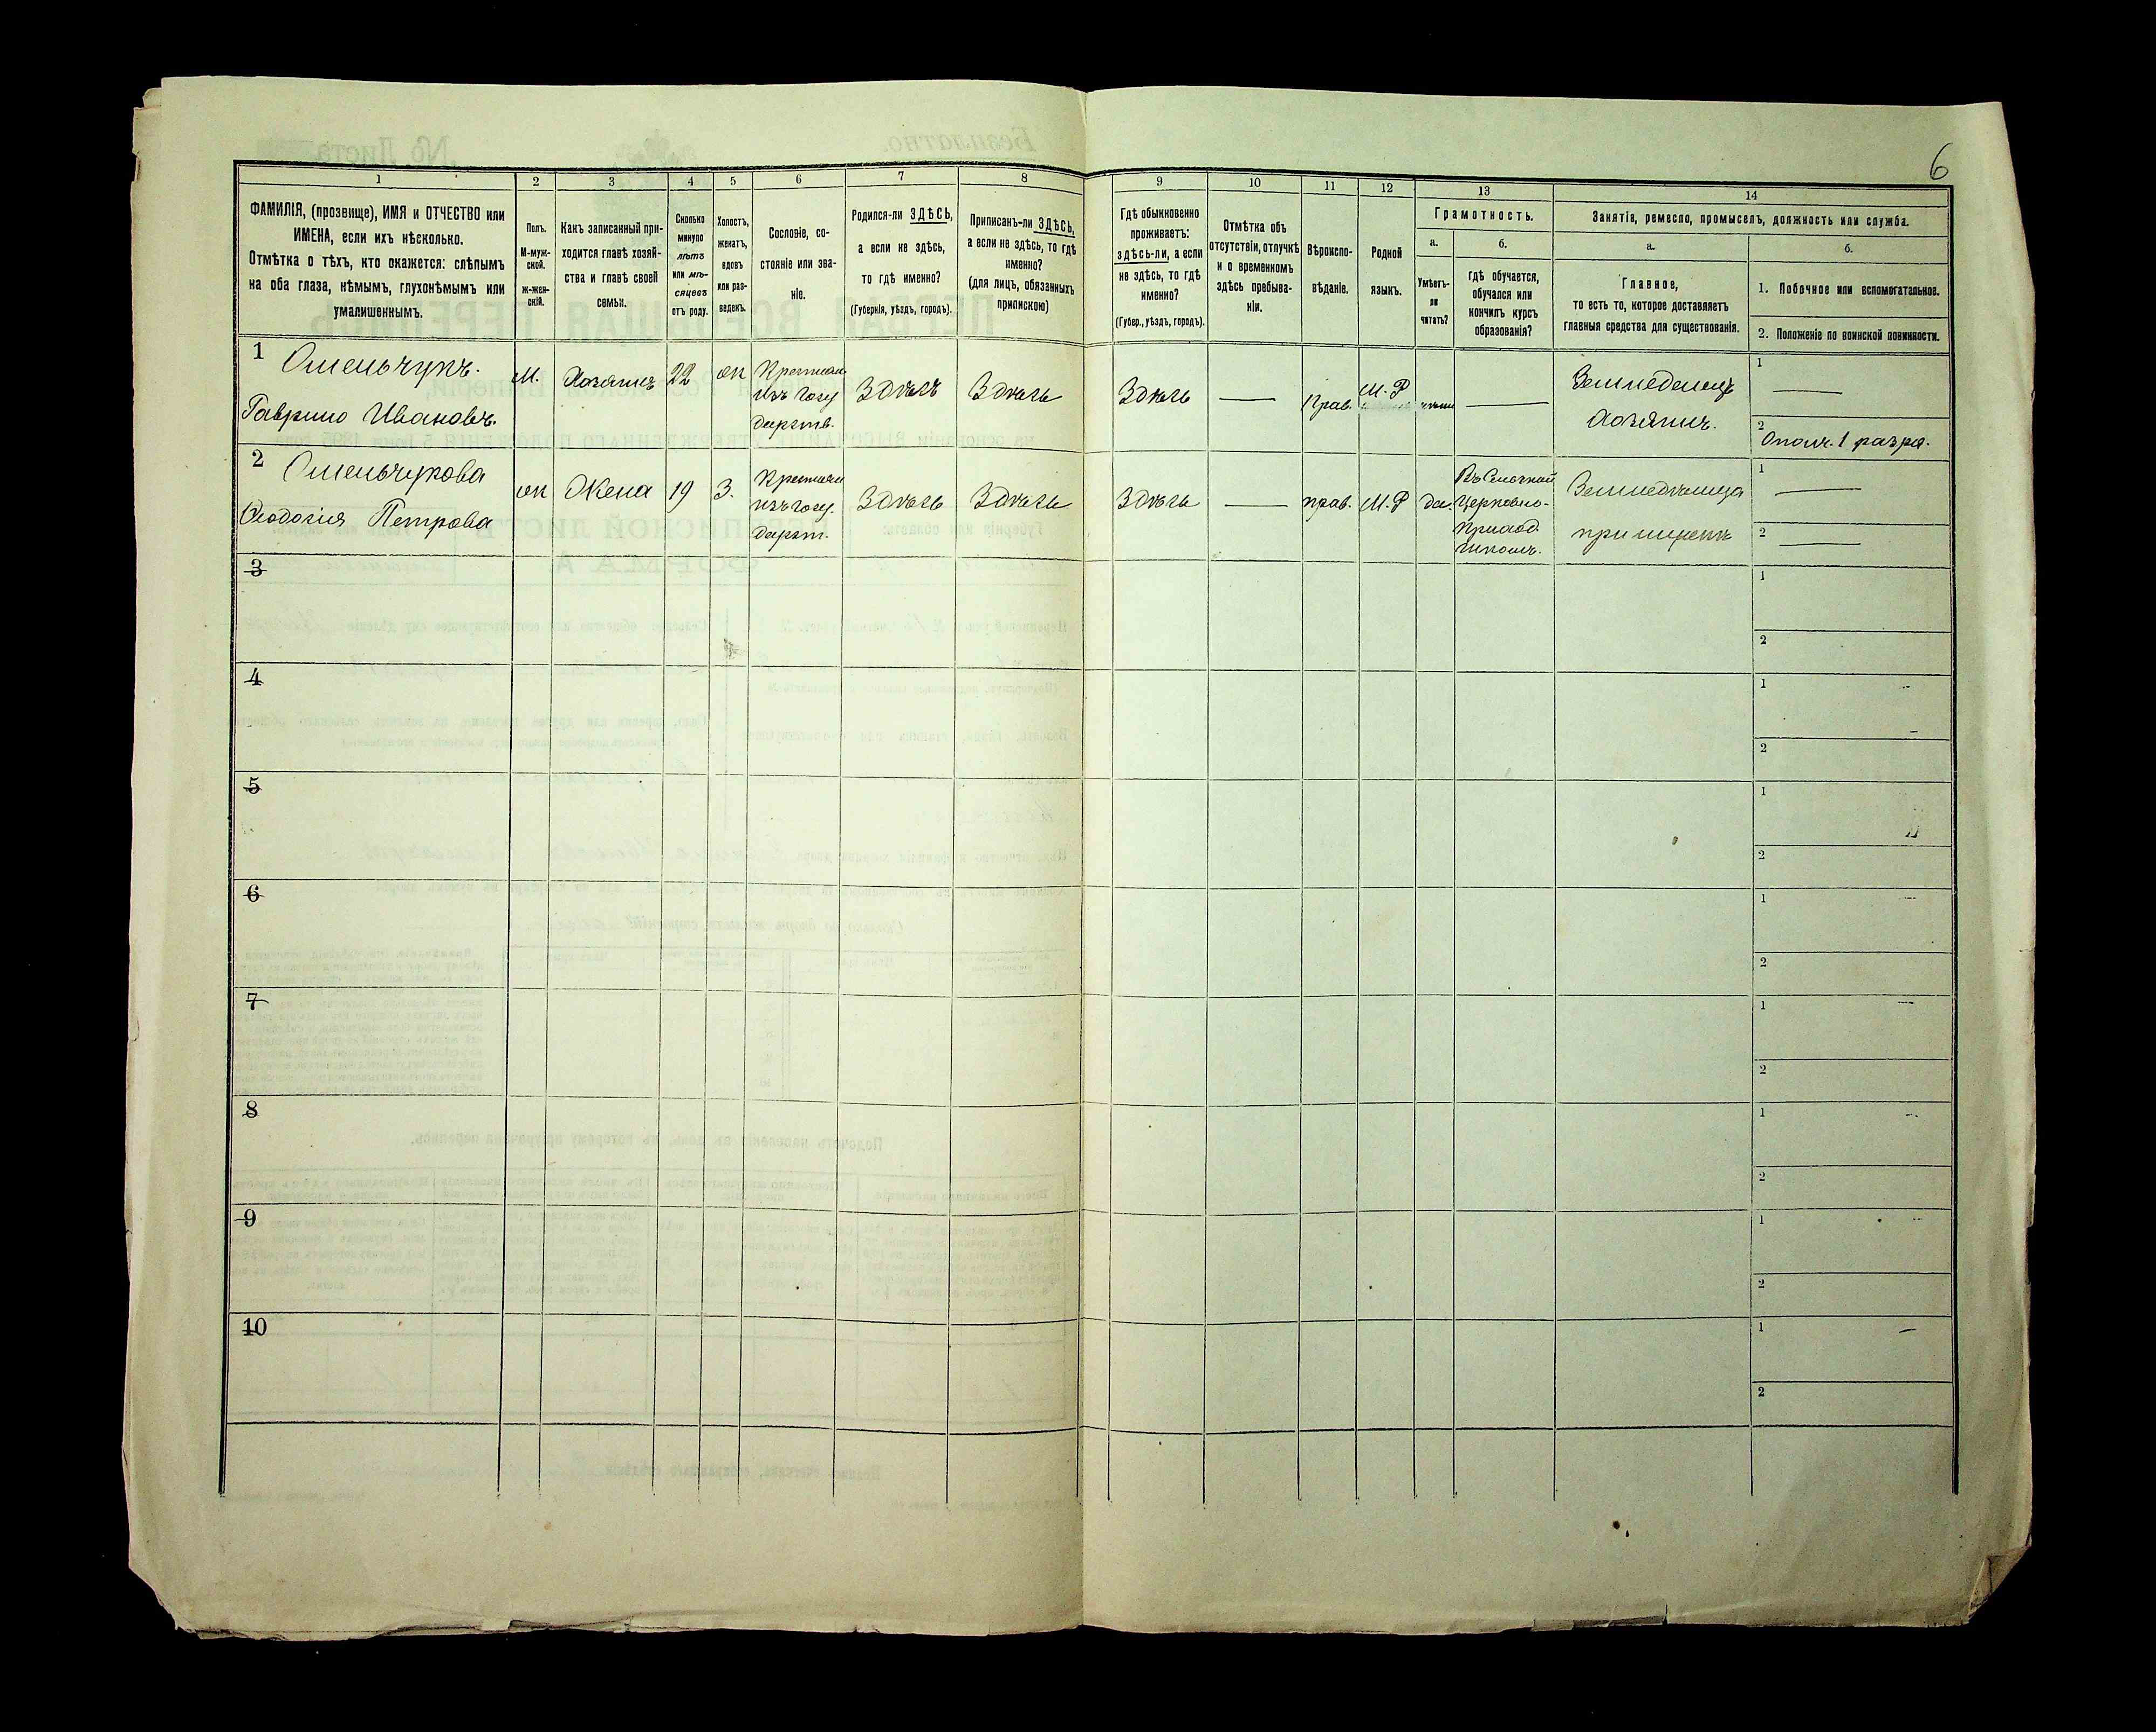 6
1 2 3 4 5 6 7 8 9 10 11 12 13 14
ФАМИЛІЯ, (прозвище), ИМЯ и ОТЧЕСТВО или
ИМЕНА, если ихъ нѣсколько.
Отмѣтка о тѣхъ, кто окажется: слѣпымъ
на оба глаза, нѣмымъ, глухонѣмымъ или
умалишеннымъ.
Полъ.
М-муж-
ской.
ж-жен-
скій.
Какъ записанный при-
ходится главѣ хозяй-
ства и главѣ своей
семьи.
Сколько
минуло
лѣтъ
или мѣ-
сяцевъ
отъ роду.
Холостъ,
женатъ,
вдовъ
или раз-
веденъ.
Сословіе, со-
стояніе или зва-
ніе.
Родился-ли ЗДѢСЬ,
а если не здѣсь,
то гдѣ именно?
(Губернія, уѣздъ, городъ).
Приписанъ-ли ЗДѢСЬ,
а если не здѣсь, то гдѣ
именно?
(для лицъ, обязанныхъ
припискою)
Гдѣ обыкновенно
проживаетъ:
здѣсь-ли, а если
не здѣсь, то гдѣ
именно?
(Губер., уѣздъ, городъ).
Отмѣтка объ
отсутствіи, отлучкѣ
и о временномъ
здѣсь пребыва-
ніи.
Вѣроиспо-
вѣданіе.
Родной
языкъ.
Грамотность.
а.
Умѣетъ-
ли
читать?
б.
гдѣ обучается,
обучался или
кончилъ курсъ
образованія?
Занятія, ремесло, промыселъ, должность или служба.
а.
Главное,
то есть то, которое доставляетъ
главныя средства для существованія.
б.
1. Побочное или вспомогательное.
2. Положеніе по воинской повинности.
1 Омельчукъ.
Гаврило Ивановъ.
М.
Хозяинъ
22
жн
Крестьян
изъ госу
дарств.
Здѣсь
Здѣсь
Здѣсь
—
прав.
М. Р
—
Земледелецъ
Хозяинъ.
1 —
2 Ополч. 1 разря.
2 Омельчукова
Ѳеодосія Петрова
жн
Жена
19
З.
Крестьян
изъ госу.
дарст.
Здѣсь
Здѣсь
Здѣсь
—
прав.
М. Р
да.
Церковно-
Приход.
школѣ.
Земледѣлица
при мужѣ
1 —
2 —
3
1
2
4
1
2
5
1
2
6
1
2
7
1
2
8
1
2
9
1
2
10
1
2